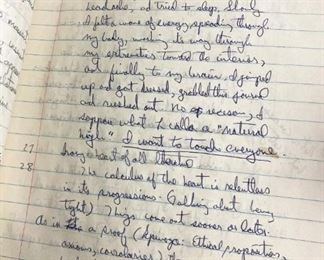 headache, and tried to sleep. Slowly
I felt a wave of energy, spreading through
my body, working its way through
my extremities toward the interior,
and finally to my brain. I jumped
up and got dressed, grabbed this journal
and rushed out. No reason, I
suppose what L calls a "natural
high." I want to touch everyone.
27
heart of all
28
The calculus of the heart is relentless
in its progressions. Galling about being
tight) Things come out sooner or later.
As in a proof (Spinoza: Ethical proposition,
axioms, corollaries)